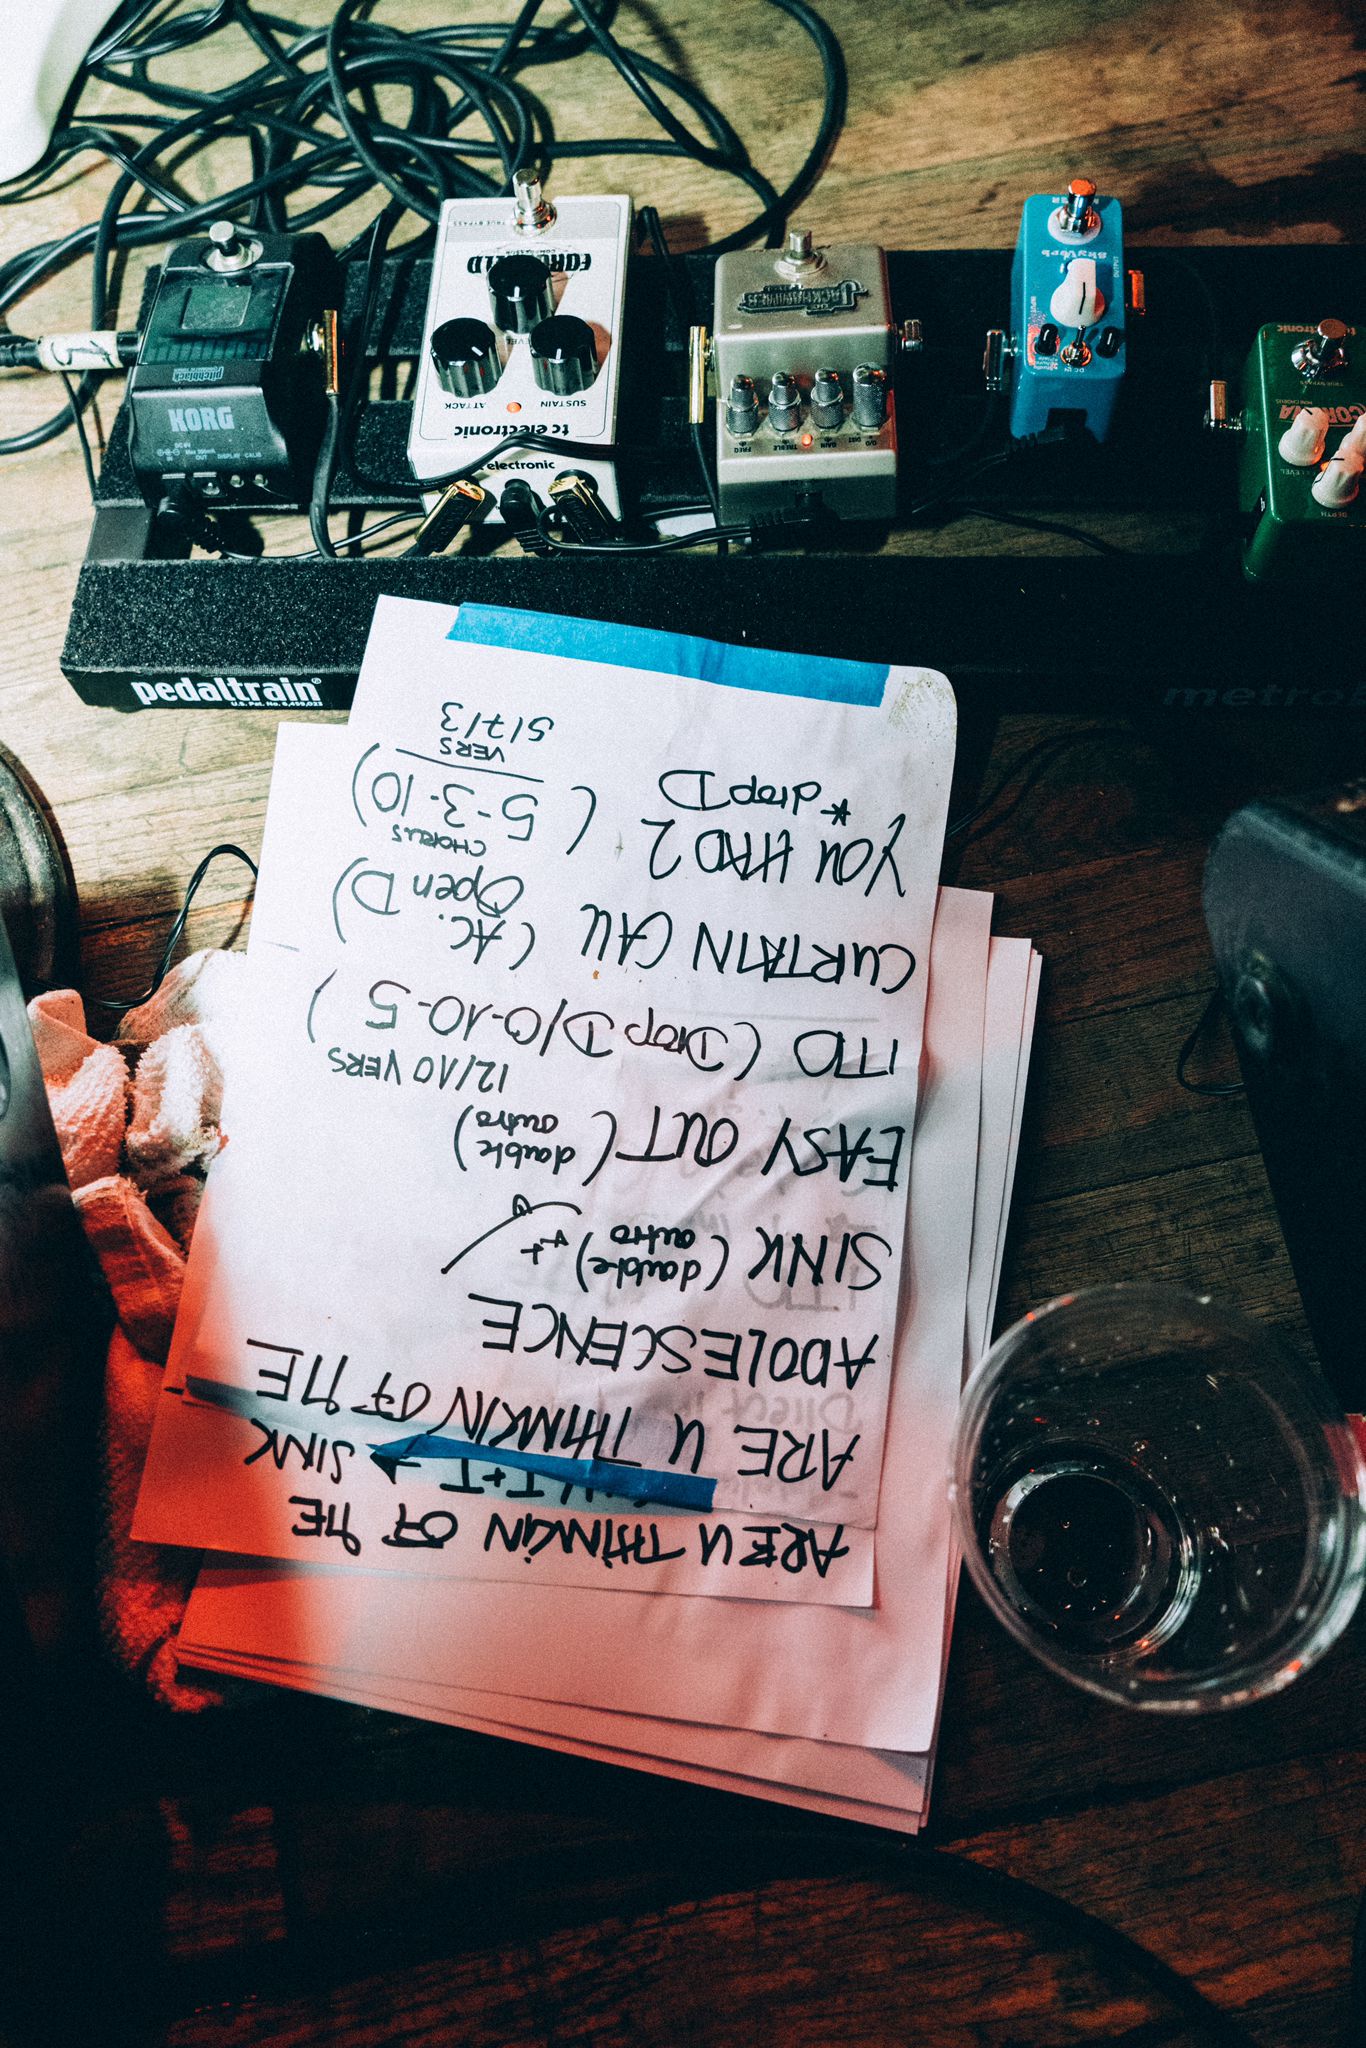 ARE U THINKIN OF ME
T+T → SINK
ARE U THINKIN OF ME
ADOLESCENCE
SINK (double outro) ++
EASY OUT (double outro)
12/10 VERS
(Drop D/0-10-5)
CURTAIN CALL (AC. Open D)
CHORUS
YOU HAD 2 (5-3-10)
*drop D
VERS
5/7/3
pedaltrain®
U.S. Pat. No. 6,459,023
KORG
pitchblack
DC 9V
Max 200mA
IN OUT DISPLAY CALIB
TRUE BYPASS
LEVEL
ATTACK SUSTAIN
tc electronic
electronic
JACKHAMMER
FREQ TREBLE GAIN
SkyVerb
INPUT OUTPUT
DC IN
tc electronic
TRUE BYPASS
MINI CHORUS
LEVEL
DEPTH